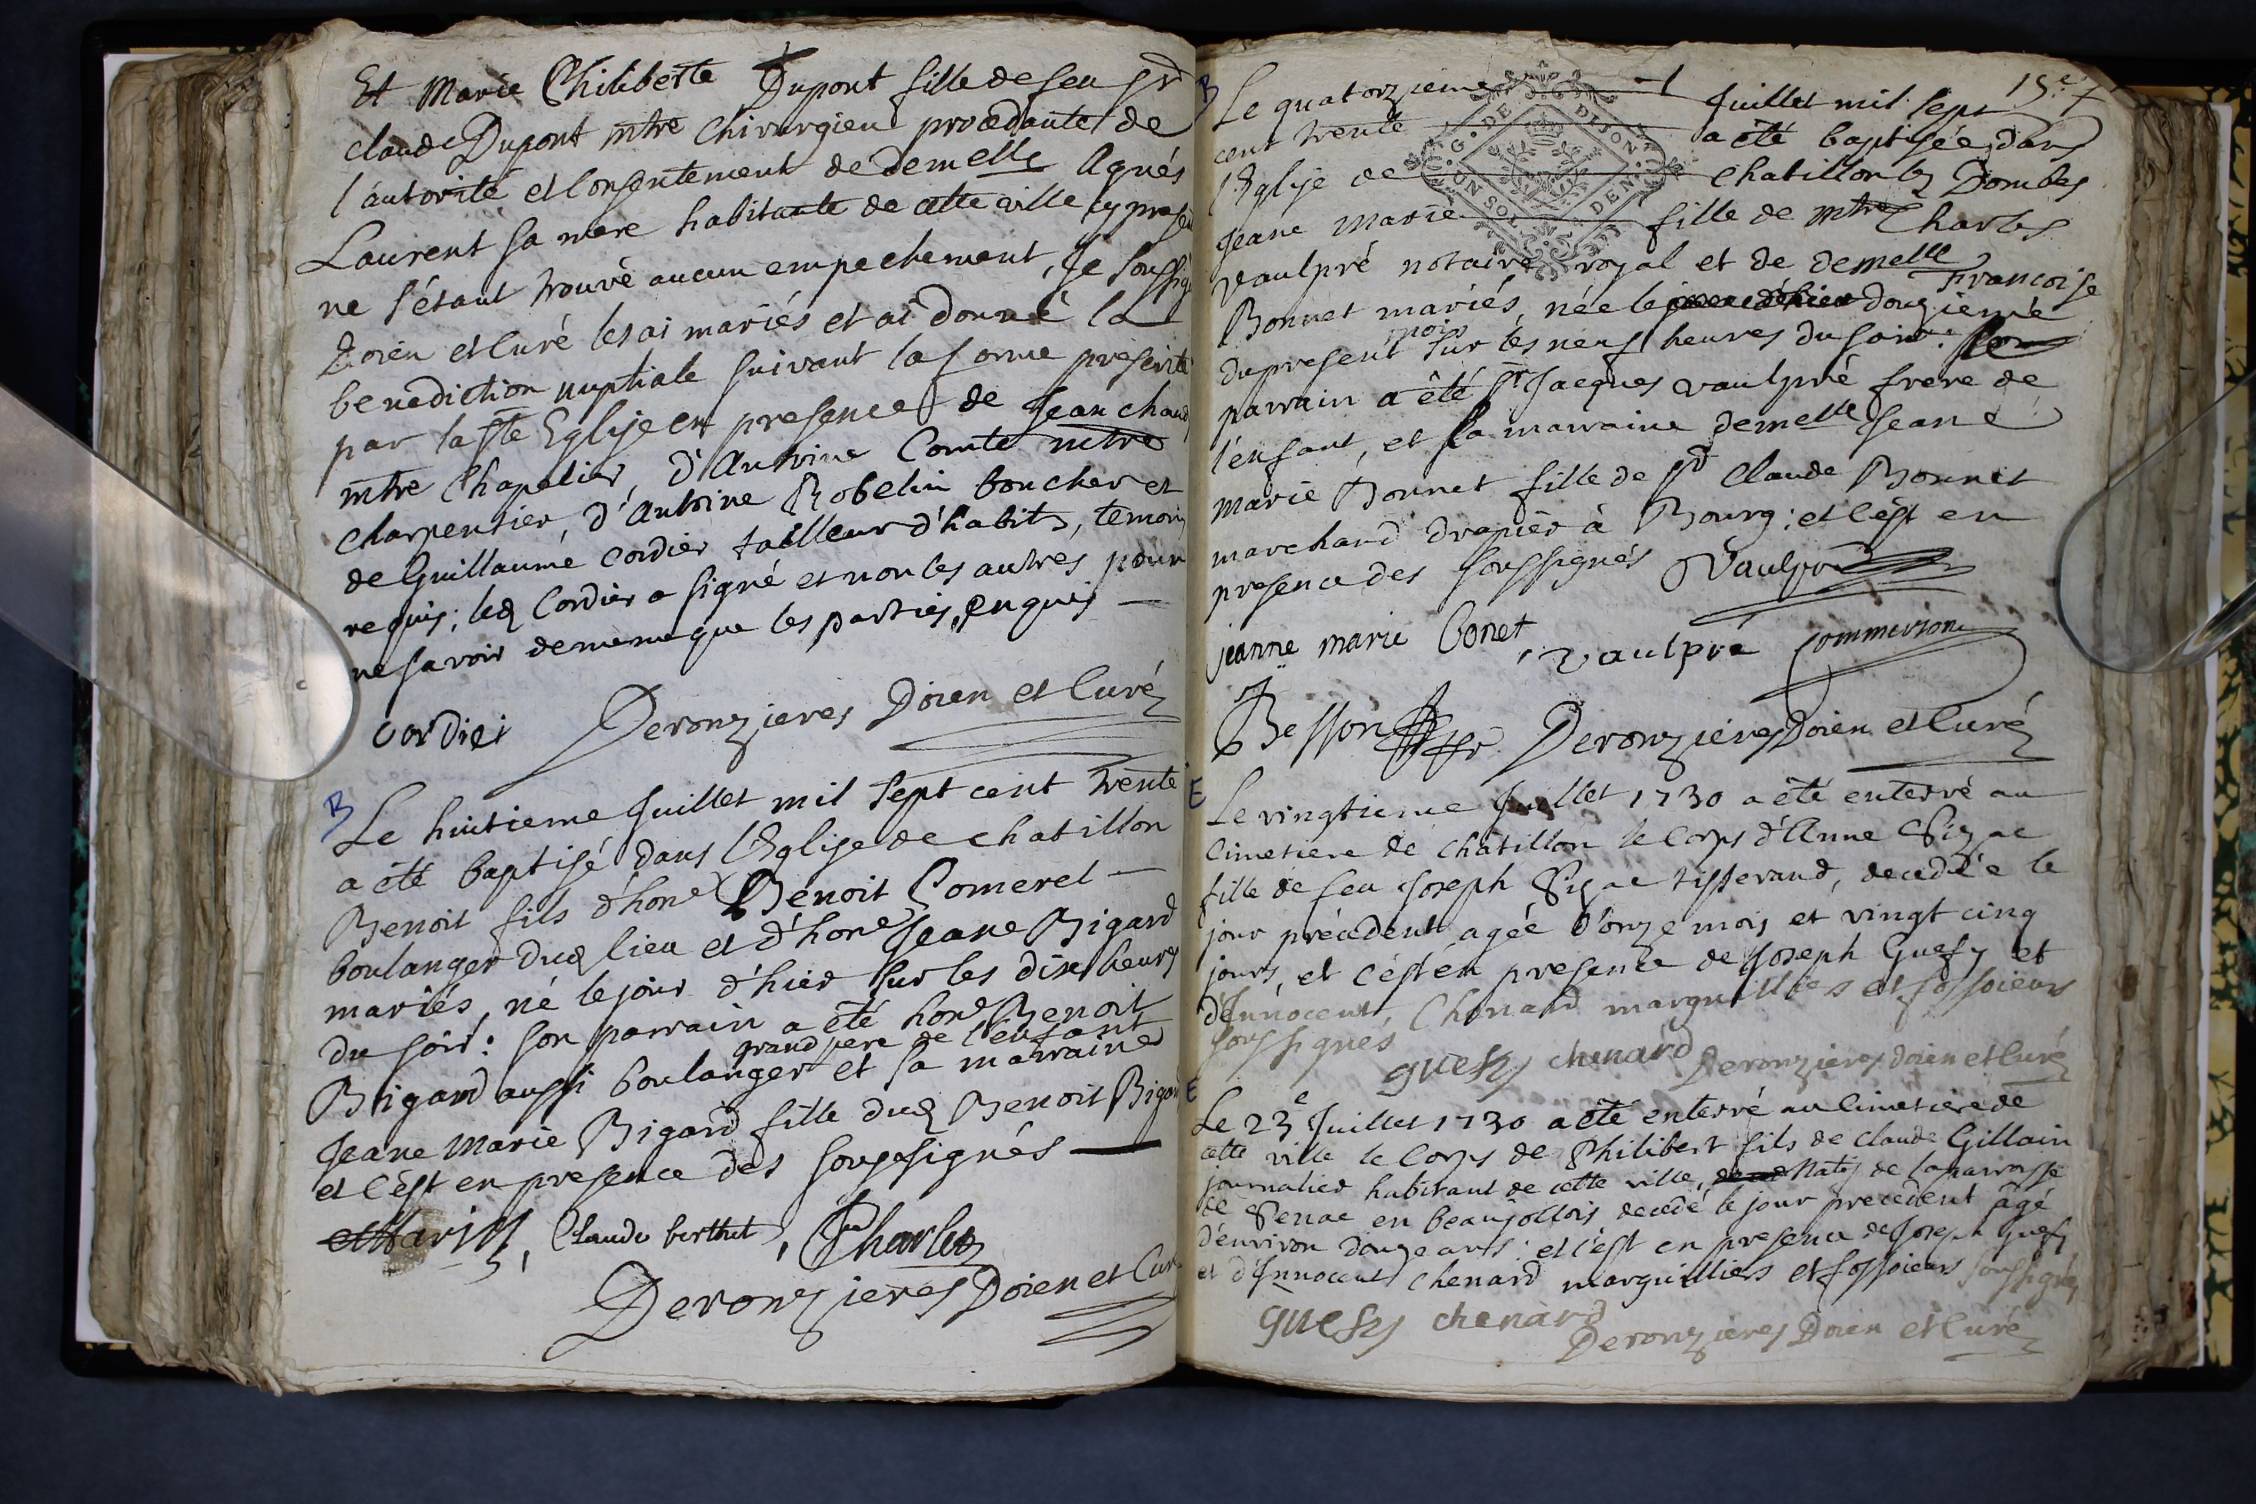 Et Marie Philiberte Dupont fille de feu Sr
claude Dupont mtre Chirurgien procedante de
l'autorité et Consentement de demelle Agnés
Laurent sa mere habitante de cette ville cy presen
ne s'étant trouvé aucun empechement, Je soussigé
Doien et Curé les ai mariés et ai donné la
benediction nuptiale suivant la forme prescrite
par la ste Eglise en presence de Jean chaud
mtre Chapelier, d'Antoine Comte mtre
Charpentier, d'Antoine Robelin boucher et
de Guillaume Cordier tailleur d'habits, temoins
requis; led Cordier a signé et non les autres pour
ne savoir de meme que les parties, enquis
cordier Deronzieres Doien et Curé
B
Le huitieme Juillet mil sept cent trente
a été baptisé dans l'Eglise de chatillon
Benoit fils d'hone Benoit Comerel
boulanger dud lieu et d'hone Jeane Bigard
mariés, né le jour d'hier sur les dix heures
du soir: son parrain a été hone Benoit
grand pere de l'enfant
Bigard aussi boulanger et sa marraine
Jeane Marie Bigard fille dud Benoit Bigard
et c'est en presence des soussignés
Claude berthet, Charles
Deronzieres Doien et Curé
15e
B
Le quatorzieme Juillet mil sept
cent trente a été baptisée dans
l'Eglise de chatillon les Dombes
Jeane Marie fille de mtre Charles
G. DE DIJON
UN SOL DEN.
Vaulpré notaire royal et de demelle Francoise
Bonnet mariés, née le douzieme
mois
du present sur les neuf heures du soir. son
parrain a été Sr Jacques Vaulpré frere de
l'enfant, et sa marraine demelle Jeane
Marie Bonnet fille de Sr Claude Bonnet
marchand drapier à Bourg; et c'est en
presence des soussignés Vaulpré
jeanne marie bonet, vaulpré Commerson
Besson Deronzieres Doien et Curé
E
Le vingtieme Juillet 1730 a été enterré au
Cimetiere de Châtillon le Corps d'Anne
fille de feu Joseph tisserand, decedée le
jour précédent agée d'onze mois et vingt cinq
jours, et c'est en presence de Joseph Guesy et
d'Innocent Chenard marguilliers et fossoieurs
soussignés
guesy chenard Deronzieres doien et Curé
E
Le 23e Juillet 1730 a été enterré au Cimetiere de
cette ville le Corps de Philibert fils de claude Gillain
journalier habitant de cette ville, natif de la parroisse
de en beaujollois decédé le jour precedent âgé
d'environ douze ans: et c'est en presence de Joseph Guesy
et d'Innocent Chenard marguilliers et fossoieurs soussignés
guesy chenard
Deronzieres Doien et Curé